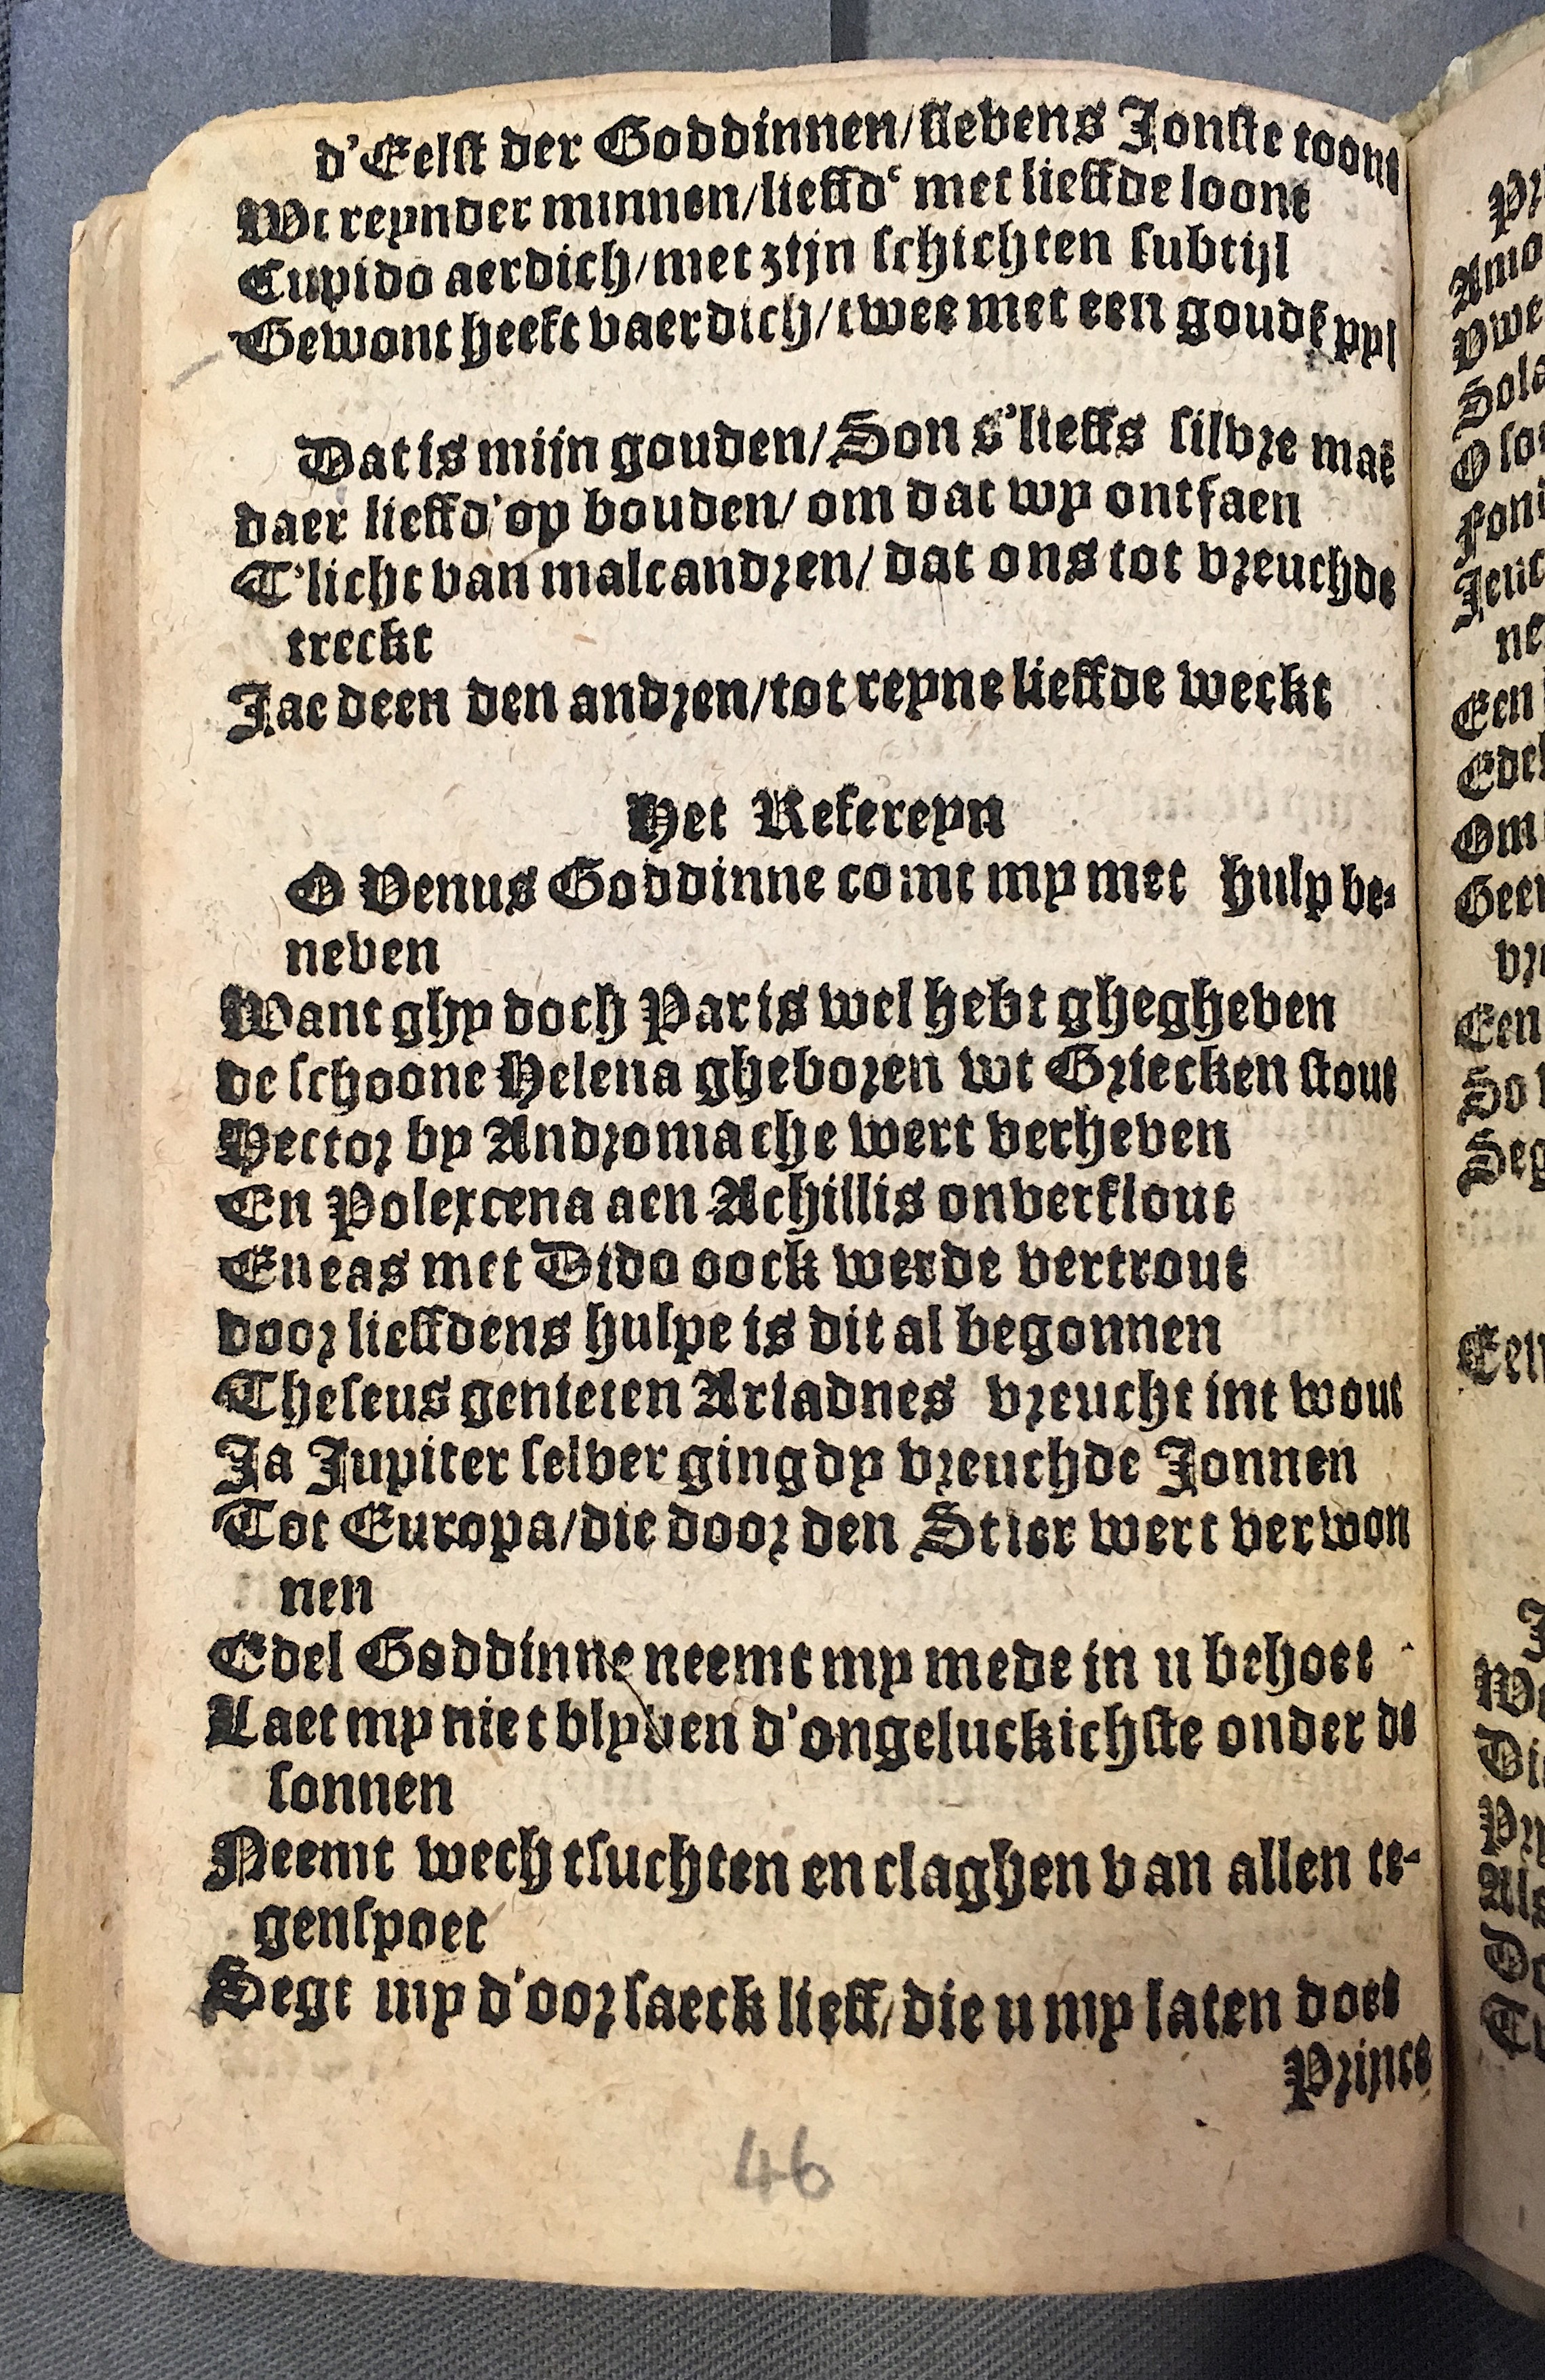 d'Eelst der Goddinnen/slevens Jonste toont
Wt reynder minnen/lieffd' met lieffde loont
Cupido aerdich/met zijn schichten subtijl
Gewont heeft vaerdich/twee met een goudē pyl
Dat is mijn gouden/Son s'lieffs silvre maē
daer lieffd'op bouden/om dat wy ontfaen
T'licht van malcandren/dat ons tot vreuchde
treckt
Jae deen den andren/tot reyne lieffde weckt
Het Refereyn
O Venus Goddinne comt my met hulp be-
neven
Want ghy doch Paris wel hebt ghegheven
de schoone Helena gheboren wt Griecken stout
Hector by Andromache wert verheven
En Polexcena aen Achillis onverflout
Eneas met Dido oock werde vertrout
door lieffdens hulpe is dit al begonnen
Theseus genieten Ariadnes vreucht int wout
Ja Jupiter selver ging dy vreuchde Jonnen
Tot Europa/die door den Stier wert verwon
nen
Edel Goddinne neemt my mede in u behoet
Laet my niet blyven d'ongeluckichste onder de
sonnen
Neemt wech tsuchten en claghen van allen te-
genspoet
Segt my d'oorsaeck lieff/die u my laten doet
Prince
46